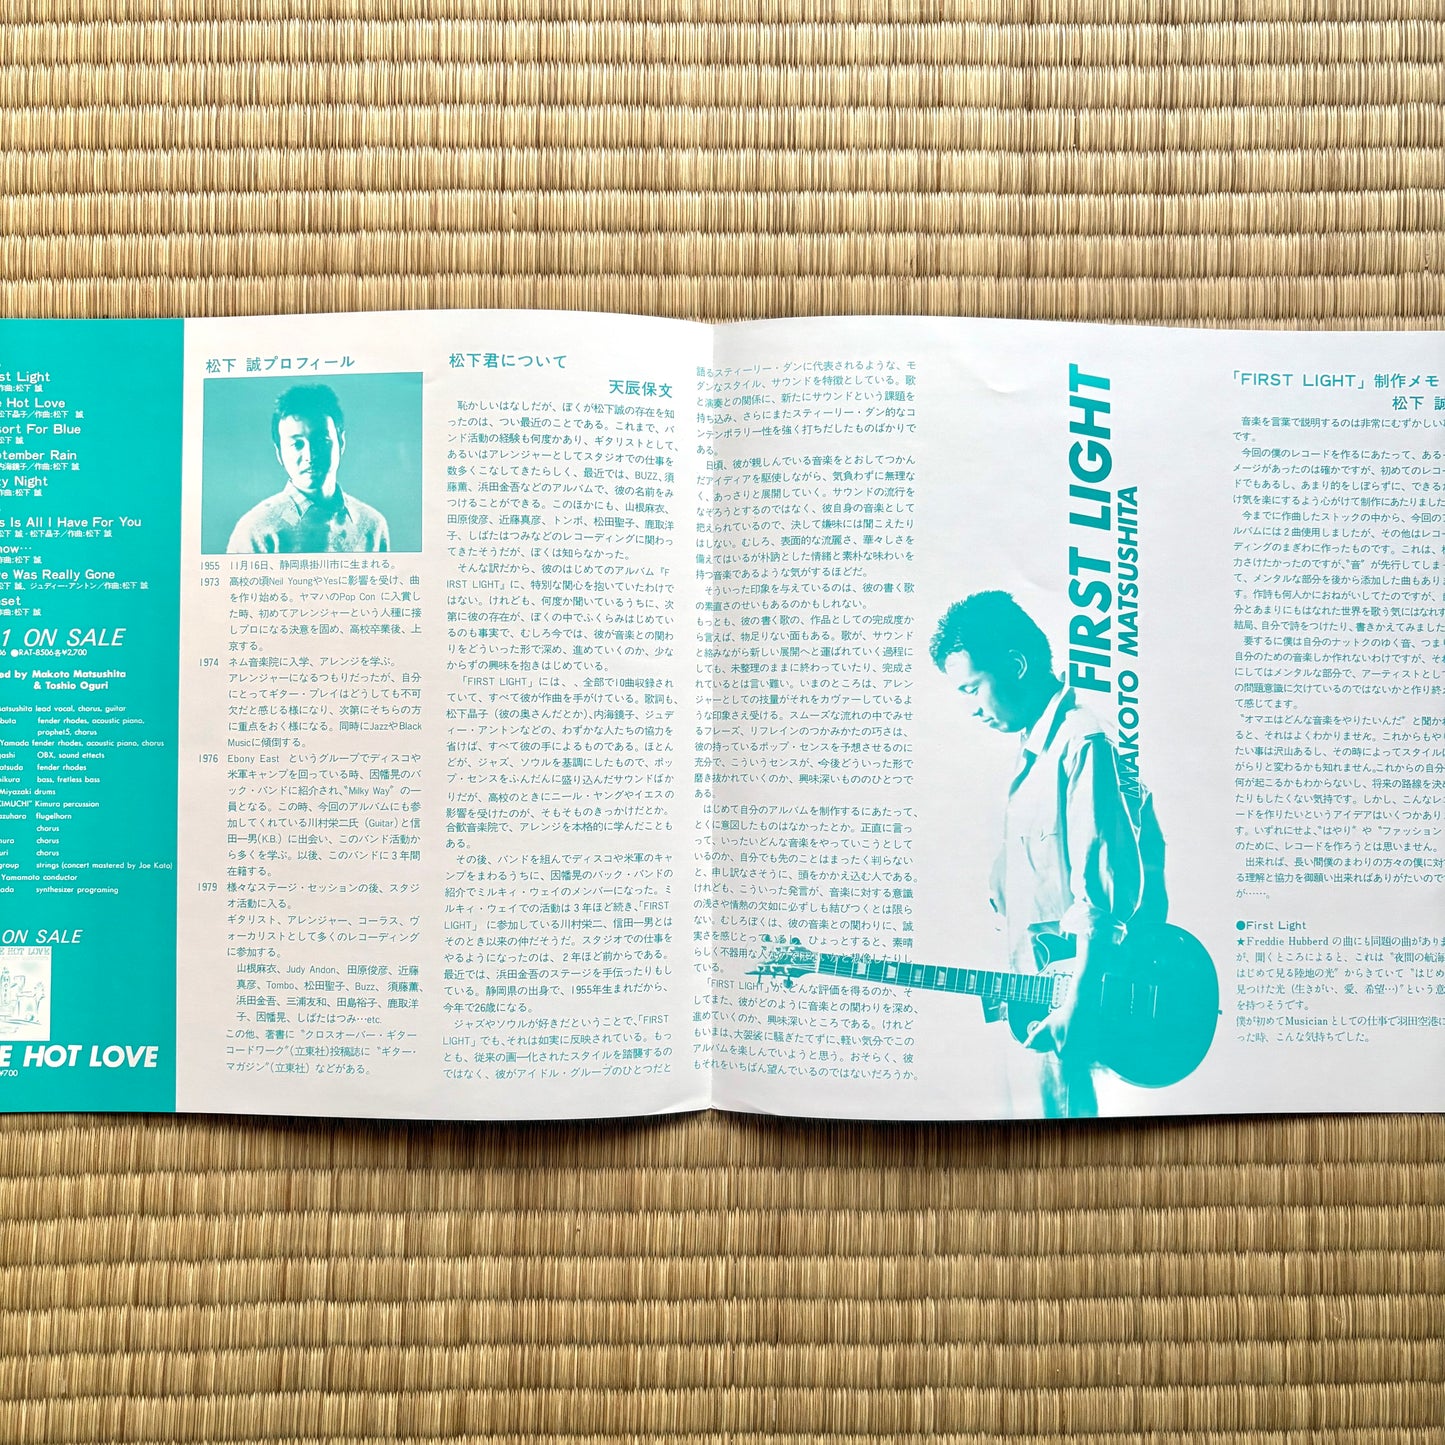 st Light
作曲:松下 誠
e Hot Love
松下晶子／作曲:松下 誠
sort For Blue
松下 誠
ptember Rain
内海鏡子／作曲:松下 誠
zy Night
作曲:松下 誠
s Is All I Have For You
下 誠・松下晶子／作曲:松下 誠
now…
作曲:松下 誠
ve Was Really Gone
下 誠、ジュディー・アントン／作曲:松下 誠
nset
作曲:松下 誠
1 ON SALE
06 ●RAT-8506各¥2,700
ed by Makoto Matsushita
& Toshio Oguri
atsushita lead vocal, chorus, guitar
buta fender rhodes, acoustic piano,
prophet5, chorus
Yamada fender rhodes, acoustic piano, chorus
gashi OBX, sound effects
atsuda fender rhodes
hikura bass, fretless bass
Miyazaki drums
KIMUCHI" Kimura percussion
azuhara flugelhorn
chorus
mura chorus
uri chorus
group strings (concert mastered by Joe Kato)
Yamamoto conductor
ada synthesizer programing
ON SALE
E HOT LOVE
E HOT LOVE
¥700
松下 誠プロフィール
1955 11月16日、静岡県掛川市に生まれる。
1973 高校の頃Neil YoungやYesに影響を受け、曲
を作り始める。ヤマハのPop Con に入賞し
た時、初めてアレンジャーという人種に接
しプロになる決意を固め、高校卒業後、上
京する。
1974 ネム音楽院に入学、アレンジを学ぶ。
アレンジャーになるつもりだったが、自分
にとってギター・プレイはどうしても不可
欠だと感じる様になり、次第にそちらの方
に重点をおく様になる。同時にJazzやBlack
Musicに傾倒する。
1976 Ebony East というグループでディスコや
米軍キャンプを回っている時、因幡晃のバ
ック・バンドに紹介され、"Milky Way" の一
員となる。この時、今回のアルバムにも参
加してくれている川村栄二氏 (Guitar) と信
田一男(K.B.) に出会い、このバンド活動か
ら多くを学ぶ。以後、このバンドに３年間
在籍する。
1979 様々なステージ・セッションの後、スタジ
オ活動に入る。
ギタリスト、アレンジャー、コーラス、ヴ
ォーカリストとして多くのレコーディング
に参加する。
山根麻衣、Judy Andon、田原俊彦、近藤
真彦、Tombo、松田聖子、Buzz、須藤薫、
浜田金吾、三浦友和、田島裕子、鹿取洋
子、因幡晃、しばたはつみ…etc.
この他、著書に "クロスオーバー・ギター
コードワーク"(立東社)投稿誌に "ギター・
マガジン"(立東社) などがある。
松下君について
天辰保文
恥かしいはなしだが、ぼくが松下誠の存在を知
ったのは、つい最近のことである。これまで、バ
ンド活動の経験も何度かあり、ギタリストとして、
あるいはアレンジャーとしてスタジオでの仕事を
数多くこなしてきたらしく、最近では、BUZZ、須
藤薫、浜田金吾などのアルバムで、彼の名前をみ
つけることができる。このほかにも、山根麻衣、
田原俊彦、近藤真彦、トンボ、松田聖子、鹿取洋
子、しばたはつみなどのレコーディングに関わっ
てきたそうだが、ぼくは知らなかった。
そんな訳だから、彼のはじめてのアルバム『F
IRST LIGHT』に、特別な関心を抱いていたわけで
はない。けれども、何度か聞いているうちに、次
第に彼の存在が、ぼくの中でふくらみはじめてい
るのも事実で、むしろ今では、彼が音楽との関わ
りをどういった形で深め、進めていくのか、少な
からずの興味を抱きはじめている。
「FIRST LIGHT」には、、全部で10曲収録され
ていて、すべて彼が作曲を手がけている。歌詞も、
松下晶子（彼の奥さんだとか）、内海鏡子、ジュデ
ィー・アントンなどの、わずかな人たちの協力を
省けば、すべて彼の手によるものである。ほとん
どが、ジャズ、ソウルを基調にしたもので、ポッ
プ・センスをふんだんに盛り込んだサウンドばか
りだが、高校のときにニール・ヤングやイエスの
影響を受けたのが、そもそものきっかけだとか。
合歓音楽院で、アレンジを本格的に学んだことも
ある。
その後、バンドを組んでディスコや米軍のキャ
ンプをまわるうちに、因幡晃のバック・バンドの
紹介でミルキィ・ウェイのメンバーになった。ミ
ルキィ・ウェイでの活動は３年ほど続き、「FIRST
LIGHT」 に参加している川村栄二、信田一男とは
そのとき以来の仲だそうだ。スタジオでの仕事を
やるようになったのは、２年ほど前からである。
最近では、浜田金吾のステージを手伝ったりもし
ている。静岡県の出身で、1955年生まれだから、
今年で26歳になる。
ジャズやソウルが好きだということで、「FIRST
LIGHT」でも、それは如実に反映されている。もっ
とも、従来の画一化されたスタイルを踏襲するの
ではなく、彼がアイドル・グループのひとつだと
語るスティーリー・ダンに代表されるような、モ
ダンなスタイル、サウンドを特徴としている。歌
と演奏との関係に、新たにサウンドという課題を
持ち込み、さらにまたスティーリー・ダン的なコ
ンテンポラリー性を強く打ちだしたものばかりで
ある。
日頃、彼が親しんでいる音楽をとおしてつかん
だアイディアを駆使しながら、気負わずに無理な
く、あっさりと展開していく。サウンドの流行を
なぞろうとするのではなく、彼自身の音楽として
把えられているので、決して嫌味には聞こえたりは
しない。むしろ、表面的な流麗さ、華々しさを
備えてはいるが朴訥とした情緒と素朴な味わいを
持つ音楽であるような気がするほどだ。
そういった印象を与えているのは、彼の書く歌
の素直さのせいもあるのかもしれない。
もっとも、彼の書く歌の、作品としての完成度か
ら言えば、物足りない面もある。歌が、サウンド
と絡みながら新しい展開へと運ばれていく過程に
しても、未整理のままに終わっていたり、完成さ
れているとは言い難い。いまのところは、アレン
ジャーとしての技量がそれをカヴァーしているよ
うな印象さえ受ける。スムーズな流れの中でみせ
るフレーズ、リフレインのつかみかたの巧さは、
彼の持っているポップ・センスを予想させるのに
充分で、こういうセンスが、今後どういった形で
磨き抜かれていくのか、興味深いもののひとつで
ある。
はじめて自分のアルバムを制作するにあたって、
とくに意図したものはなかったとか。正直に言っ
て、いったいどんな音楽をやっていこうとして
いるのか、自分でも先のことはまったく判らない
と、申し訳なさそうに、頭をかかえ込む人である。
けれども、こういった発言が、音楽に対する意識
の浅さや情熱の欠如に必ずしも結びつくとは限ら
ない。むしろぼくは、彼の音楽との関わりに、誠
ている。
「FIRST LIGHT」が、どんな評価を得るのか、そ
してまた、彼がどのように音楽との関わりを深め、
進めていくのか、興味深いところである。けれど
もいまは、大袈裟に騒ぎたてずに、軽い気分でこの
アルバムを楽しんでいようと思う。おそらく、彼
もそれをいちばん望んでいるのではないだろうか。
FIRST LIGHT
MAKOTO MATSUSHITA
「FIRST LIGHT」制作メモ
松下 誠
音楽を言葉で説明するのは非常にむずかしい
です。
今回の僕のレコードを作るにあたって、ある
メージがあったのは確かですが、初めてのレコー
ドでもあるし、あまり的をしぼらずに、できるだ
け気を楽にするよう心がけて制作にあたりました
今までに作曲したストックの中から、今回のア
ルバムには２曲使用しましたが、その他はレコー
ディングのまぎわに作ったものです。これは、
力さけたかったのですが、"音" が先行してしまっ
て、メンタル的な部分を後から添加した曲もありま
す。作詩も何人かにおねがいしてたのですが、自
分とあまりにもはなれた世界を歌う気にはなれず
結局、自分で詩をつけたり、書きかえてみました
要するに僕は自分のナットクのゆく音、つま
自分のための音楽しか作れないわけですが、それ
にしてはメンタルな部分で、アーティストとして
の問題意識に欠けているのではないかと作り終え
て感じてます。
"オマエはどんな音楽をやりたいんだ" と聞かれ
ると、それはよくわかりません。これからもやり
たい事は沢山あるし、その時によってスタイル
がらりと変わるかも知れません。これからの自分
何が起こるかもわからないし、将来の路線を決め
たりもしたくない気持です。しかし、こんなレコ
ードを作りたいというアイデアはいくつかあり
す。いずれにせよ、"はやり" や "ファッション"
のために、レコードを作ろうとは思いません。
出来れば、長い間僕のまわりの方々の僕に対す
る理解と協力を御願い出来ればありがたいのです
が……。
●First Light
★Freddie Hubberd の曲にも同題の曲がありま
が、聞くところによると、これは "夜間の航海
はじめて見る陸地の光" からきていて "はじめ
見つけた光（生きがい、愛、希望…)" という意
を持つそうです。
僕が初めてMusicianとしての仕事で羽田空港に
った時、こんな気持ちでした。